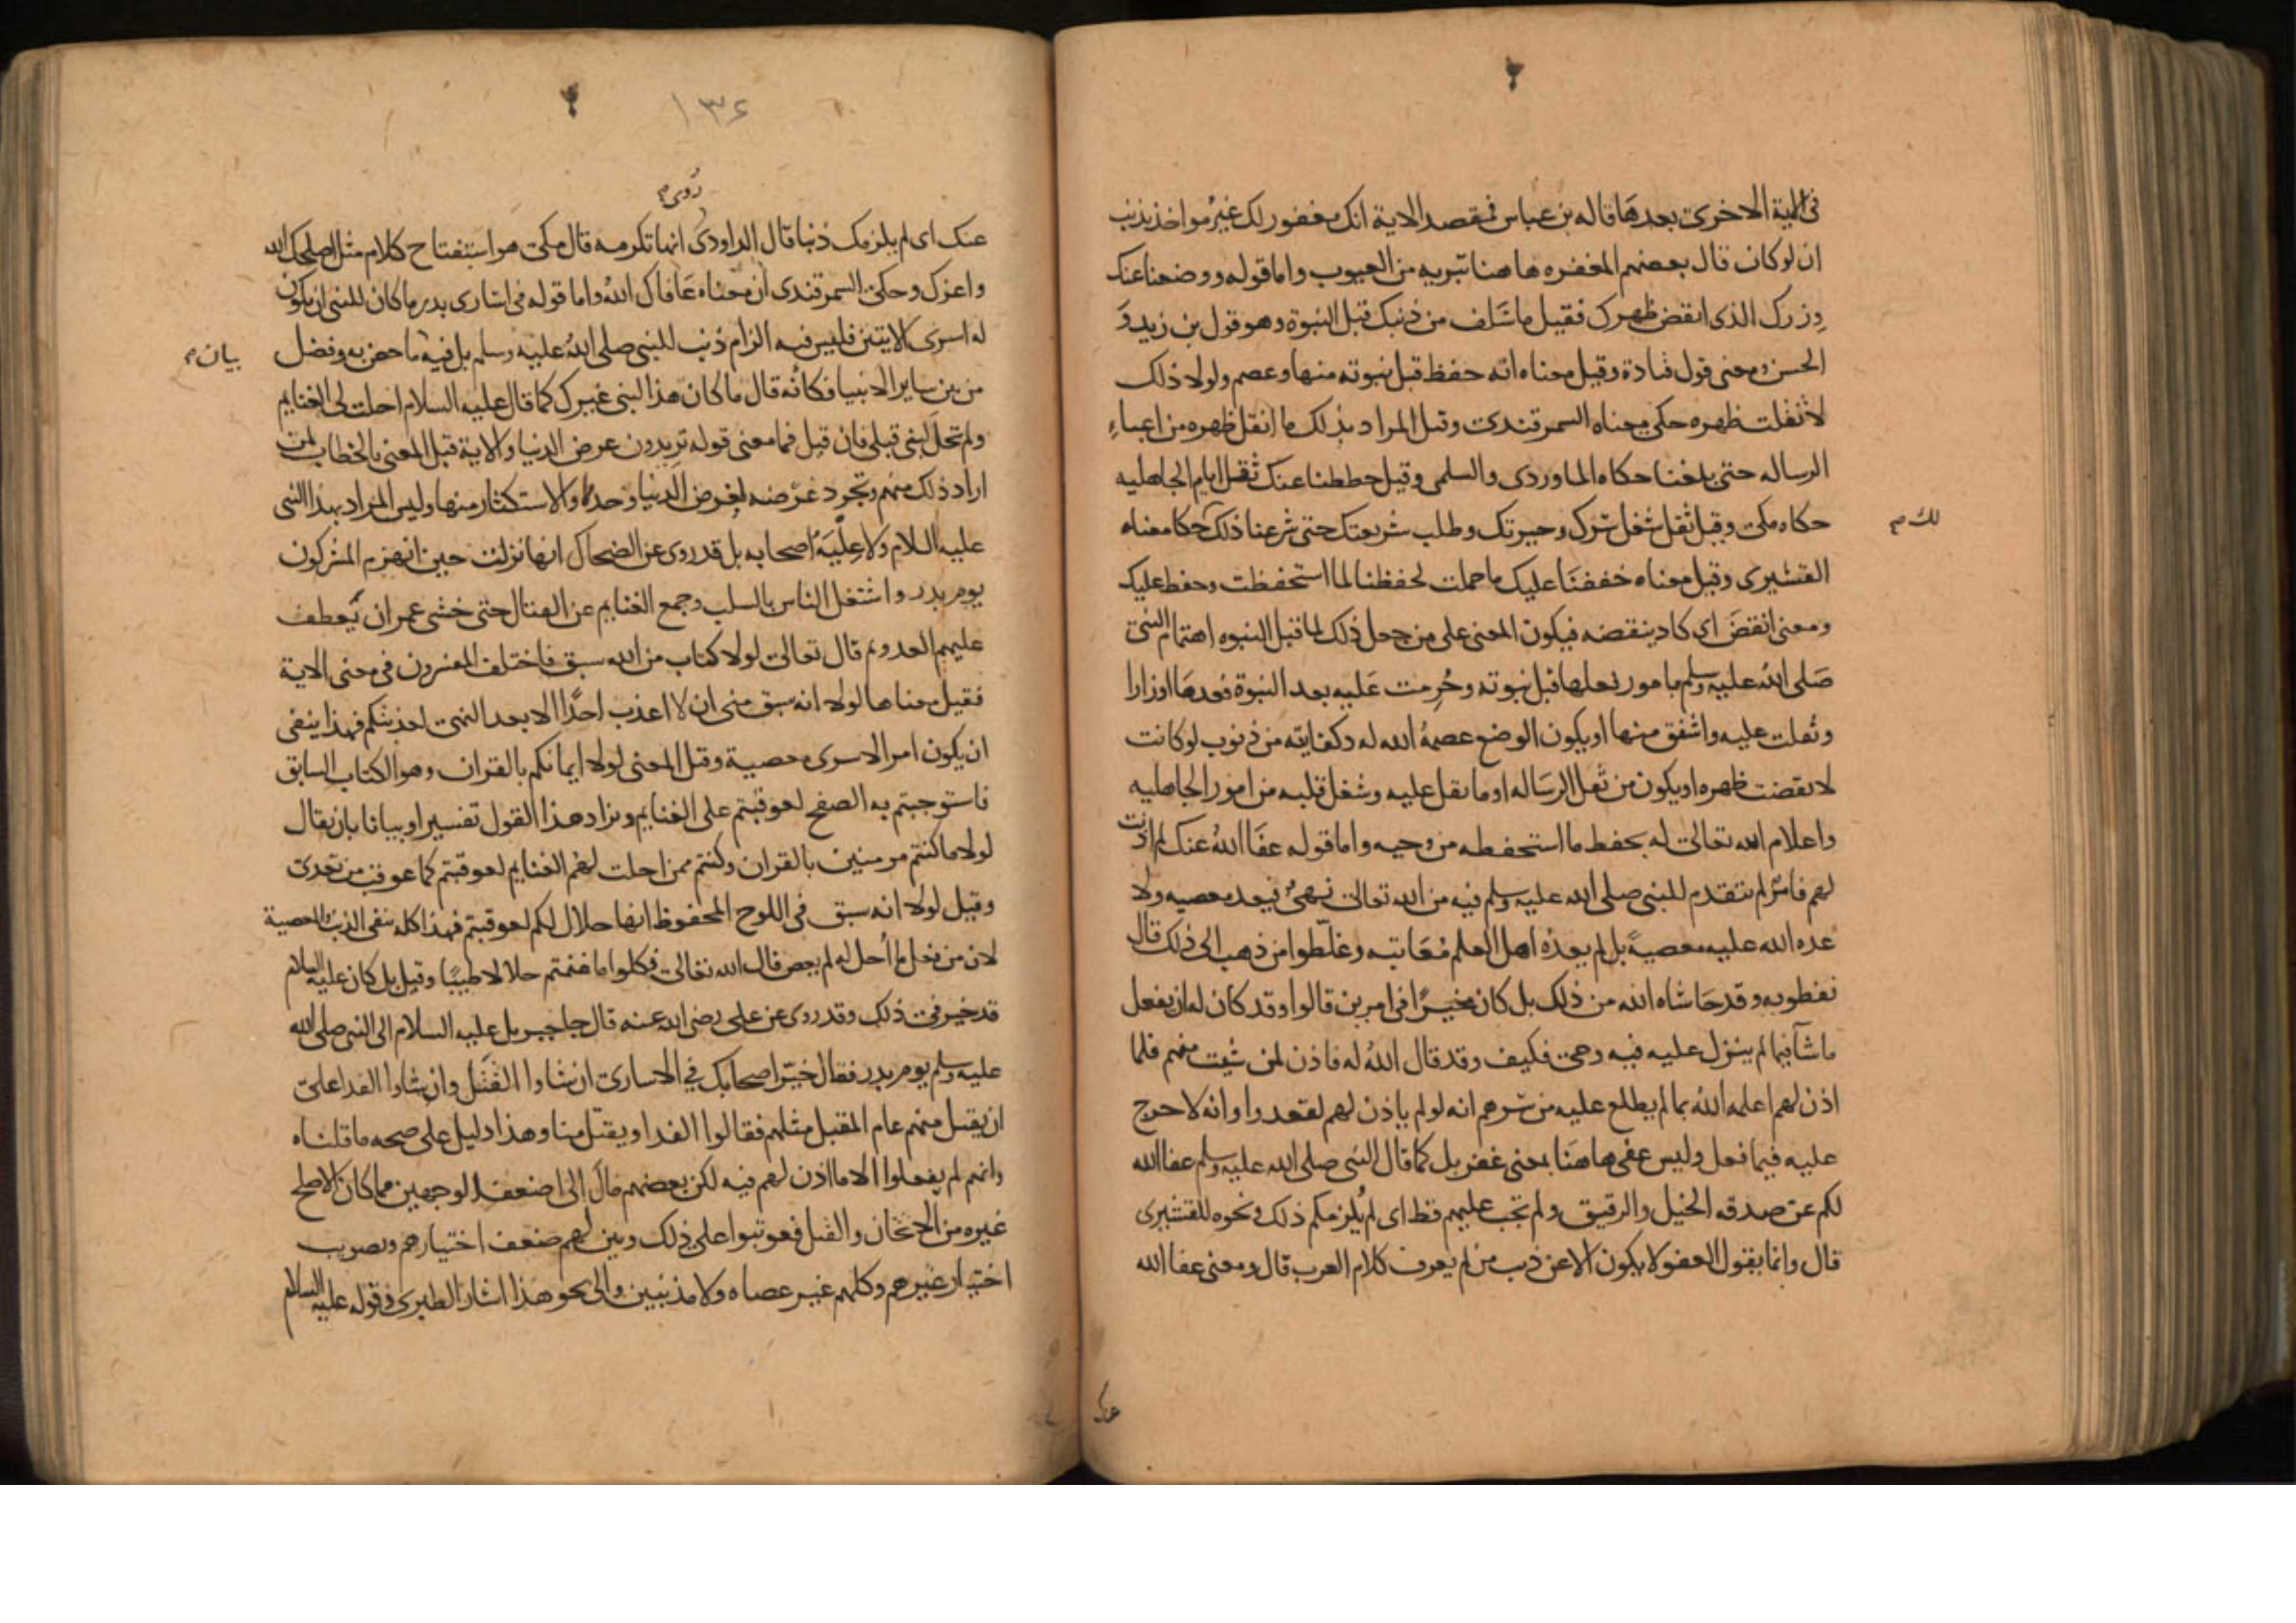 فى الاية الاخرى بعدها قاله بن عباس فمقصد الاية انك مغفور لك غير مواخذ بذنب
ان لو كان قال بعضهم المغفره هاهنا تبريه من العيوب واما قوله ووضعنا عنك
وزرك الذى انقض ظهرك فقيل ما سلف من ذنبك قبل النبوة وهو قول بن زيد و
الحسن ومعنى قول قتادة وقيل معناه انه حفظ قبل نبوته منها وعصم ولولا ذلك
لاثقلت ظهره حكى معناه السمرقندى وقيل المراد بذلك ما اثقل ظهره من اعباء
الرساله حتى بلغنا حكاه الماوردى والسلمى وقيل حططنا عنك ثقل ايام الجاهليه
حكاه مكى وقيل ثقل شغل سرك وحيرتك وطلب شريعتك حتى شرعنا ذلك حكا معناه
لك صح
القشيرى وقيل معناه خففنا عليك ما حملت لحفظنا لما استحفظت وحفظ عليك
ومعنى انقض اى كاد ينقضه فيكون المعنى على من جعل ذلك لما قبل النبوه اهتمام النبى
صلى الله عليه وسلم بامور فعلها قبل نبوته وحرمت عليه بعد النبوة فعدها اوزارا
وثقلت عليه واشفق منها او يكون الوضع عصمة الله له وكفايته من ذنوب لو كانت
لانقضت ظهره او يكون من ثقل الرساله او ما ثقل عليه وشغل قلبه من امور الجاهليه
واعلام الله تعالى له بحفظ ما استحفظه من وحيه واما قوله عفا الله عنك لم اذنت
لهم فامر لم يتقدم للنبى صلى الله عليه وسلم فيه من الله تعالى نهى فيعد معصيه ولا
عده الله عليه معصية بل لم يعده اهل العلم معاتبه وغلّطوا من ذهب الى ذلك قال
نفطويه وقد حاشاه الله من ذلك بل كان مخيرا فى امرين قالوا وقد كان له ان يفعل
ما شآ فيما لم ينزل عليه فيه وحى فكيف وقد قال الله له فاذن لمن شيت منهم فلما
اذن لهم اعلمه الله بما لم يطلع عليه من سرهم انه لو لم ياذن لهم لقعدوا وانه لا حرج
عليه فيما فعل وليس عفى هاهنا بمعنى غفر بل كما قال النبى صلى الله عليه وسلم عفا الله
لكم عن صدقه الخيل والرقيق ولم تجب عليهم قط اى لم يلزمكم ذلك ونحوه للقشيرى
قال وانما يقول العفو لا يكون الا عن ذنب من لم يعرف كلام العرب قال ومعنى عفا الله
عنك
١٣٤
روى
عنك اى لم يلزمك ذنبا قال الداودى انها تكرمه قال مكى هو استفتاح كلام مثل اصلحك الله
واعزك وحكى السمرقندى ان معناه عافاك الله واما قوله فى اسارى بدر ما كان للنبى ان يكون
له اسرى الايتين فليس فيه الزام ذنب للنبى صلى الله عليه وسلم بل فيه ما خص به وفضل
بيان
من بين ساير الانبيا فكانه قال ما كان هذا لنبى غيرك كما قال عليه السلام احلت لى الغنايم
ولم تحل لنبى قبلى فان قيل فما معنى قوله تريدون عرض الدنيا والاية قيل المعنى بالخطاب لمن
اراد ذلك منهم وتجرد غرضه لغرض الدنيا وحده والاستكثار منها وليس المراد بهذا النبى
عليه السلام ولا علية اصحابه بل قد روى عن الضحاك انها نزلت حين انهزم المشركون
يوم بدر واشتغل الناس بالسلب وجمع الغنايم عن القتال حتى خشى عمر ان يعطف
عليهم العدو ثم قال تعالى لولا كتاب من الله سبق فاختلف المفسرون فى معنى الاية
فقيل معناها لولا انه سبق منى ان لا اعذب احدا الا بعد النهى لعذبتكم فهذا ينفى
ان يكون امر الاسرى معصية وقيل المعنى لولا ايمانكم بالقران وهو الكتاب السابق
فاستوجبتم به الصفح لعوقبتم على الغنايم ويزاد هذا القول تفسيرا وبيانا بان يقال
لولا ما كنتم مومنين بالقران وكنتم ممن احلت لهم الغنايم لعوقبتم كما عوقب من تعدى
وقيل لولا انه سبق فى اللوح المحفوظ انها حلال لكم لعوقبتم فهذا كله ينفى الذنب والمعصية
لان من فعل ما أحل له لم يعص قال الله تعالى فكلوا مما غنمتم حلالا طيبا وقيل بل كان عليه السلام
قد خير فى ذلك وقد روى عن على رضى الله عنه قال جا جبريل عليه السلام الى النبى صلى الله
عليه وسلم يوم بدر فقال خيّر اصحابك فى الاسارى ان شاوا القتل وان شاوا الفدا على
ان يقتل منهم عام المقبل مثلهم فقالوا الفدا ويقتل منا وهذا دليل على صحه ما قلناه
وانهم لم يفعلوا الا ما اذن لهم فيه لكن بعضهم مال الى اضعف الوجهين مما كان الاصلح
غيره من الاثخان والقتل فعوتبوا على ذلك وبين لهم ضعف اختيارهم وتصويب
اختيار غيرهم وكلهم غير عصاه ولا مذنبين والى نحو هذا اشار الطبرى وقوله عليه السلام